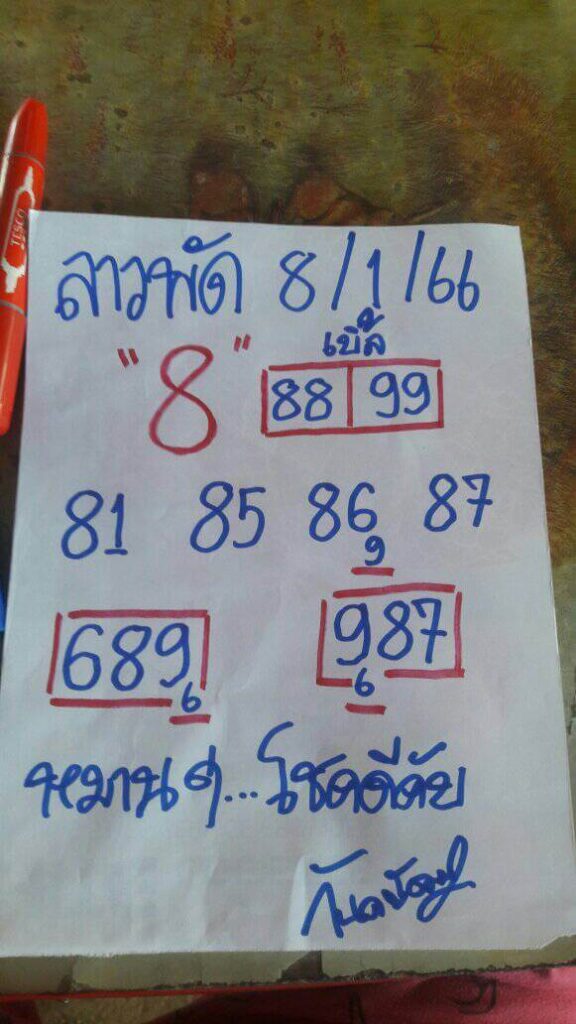 TESCO
ลาวพัด 8/1/66
"8"
เบิ้ล
88 99
81 85 86 87
9
689 987
6 6
หมานๆ...โชคดีคับ